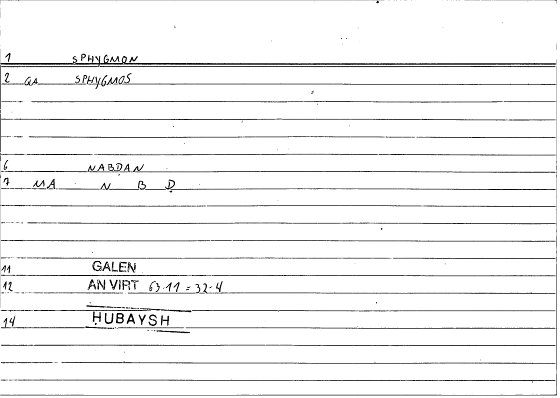 1 SPHYGMON
2 GA SPHYGMOS
6 NABḌAN
7 MA N B Ḍ
11 GALEN
12 AN VIRT 63·11 = 32·4
14 ḤUBAYSH